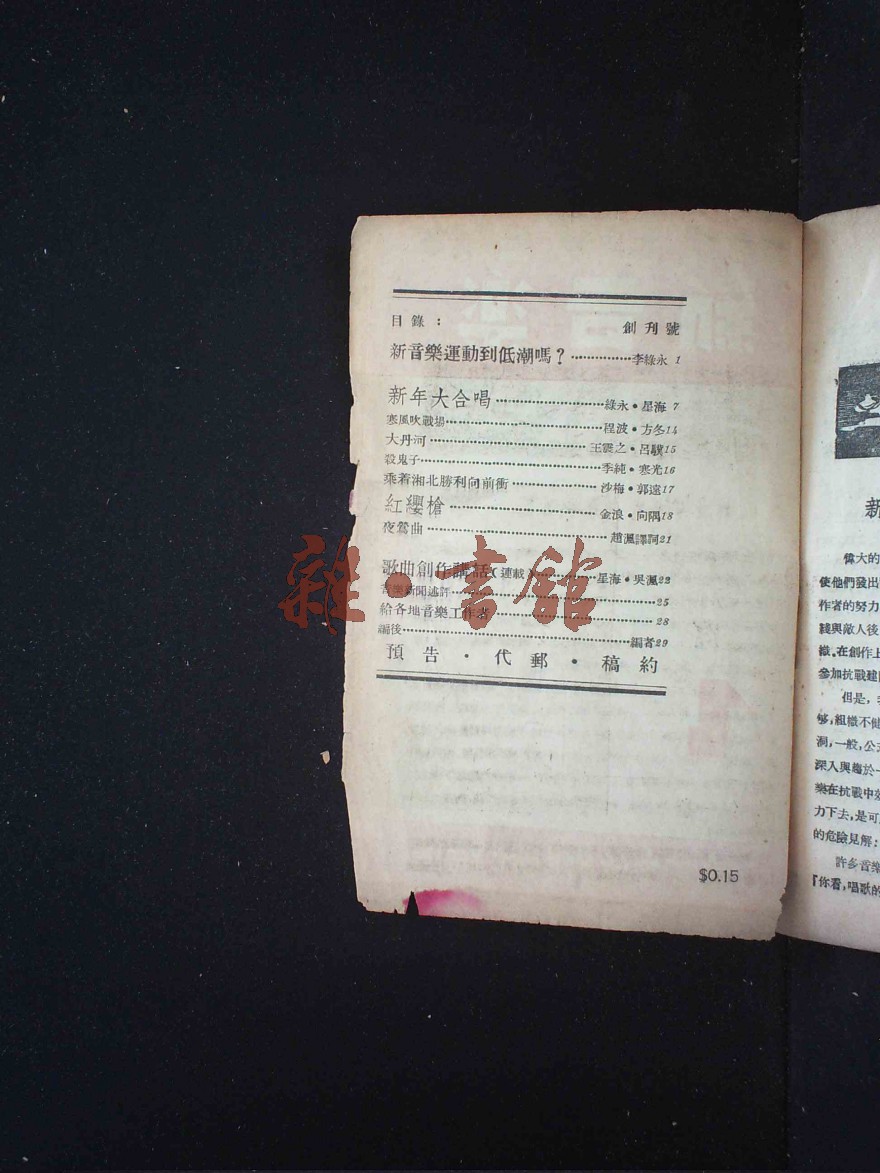 目錄：
創刊號
新音樂運動到低潮嗎？…………李綠永 1
新年大合唱…………綠永・星海 7
寒風吹戰場…………程波・方冬14
大丹河…………王震之・呂驥15
殺鬼子…………季純・寒光16
乘着湘北勝利向前衝…………沙梅・郭遠17
紅纓槍…………金浪・向隅18
夜鶯曲…………趙渢譯詞21
歌曲創作講話（連載）…………星海・吳渢22
音樂新聞述評…………25
給各地音樂工作者…………28
編後…………編者29
預告・代郵・稿約
$0.15
雜・書館
新
偉大的
使他們發出
作者的努力
綫與敵人後
織。在創作上
參加抗戰建
但是，
够，組織不健
洞，一般，公
深入與趨於一
樂在抗戰中
力下去，是可
的危險見解：
許多音樂
『你看，唱歌的